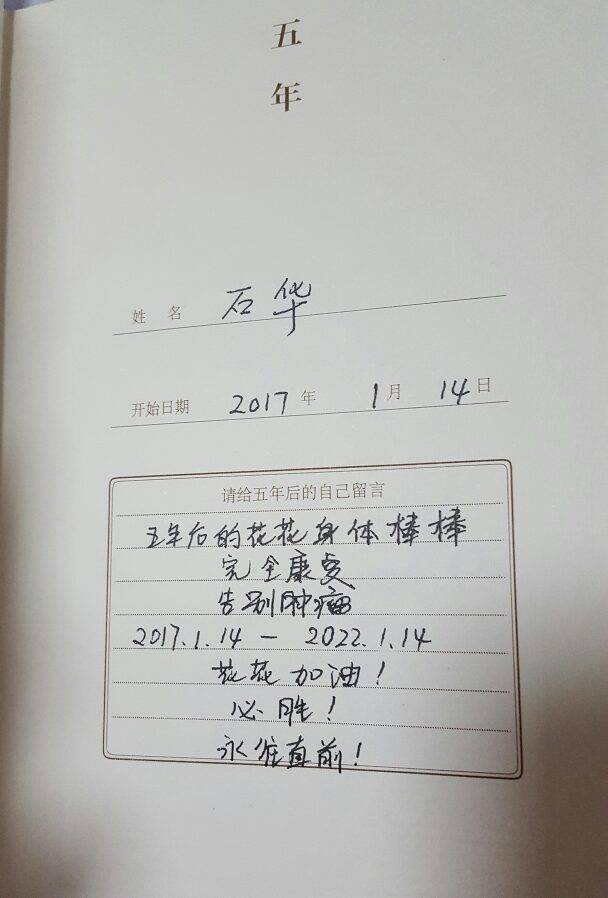 五
年
姓 名 石华
开始日期 2017 年 1 月 14 日
请给五年后的自己留言
五年后的花花身体棒棒
完全康复
告别肿瘤
2017.1.14 - 2022.1.14
花花加油！
必胜！
永往直前！